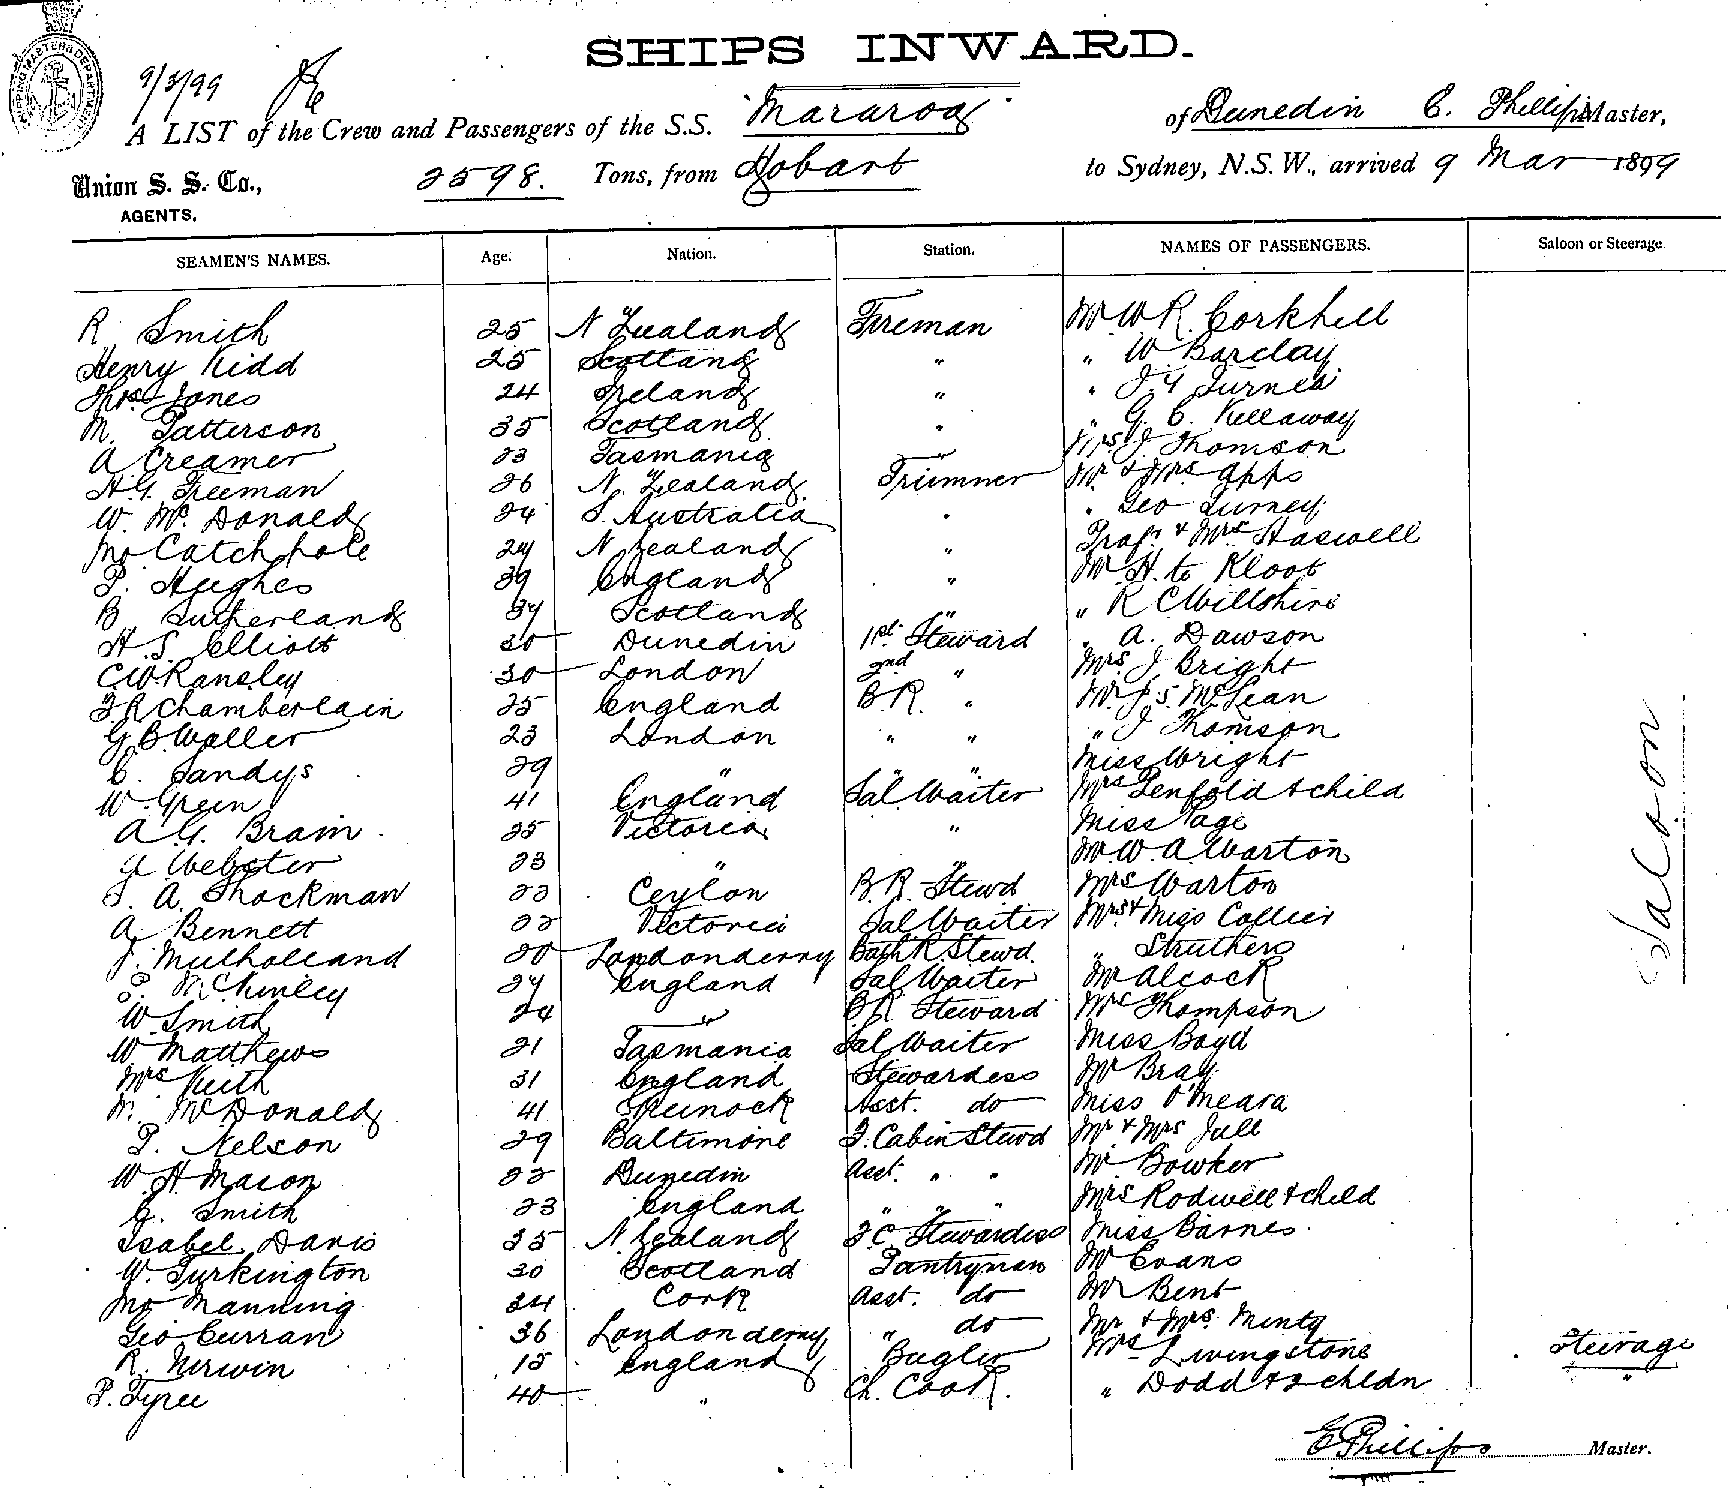 SHIPS INWARD.
9/3/99
A LIST of the Crew and Passengers of the S.S. "Mararoa" of Dunedin C. Phillips Master,
Union S. S. Co., 2598. Tons, from Hobart to Sydney, N.S.W., arrived 9 Mar 1899
AGENTS.
SEAMEN'S NAMES. Age. Nation. Station. NAMES OF PASSENGERS. Saloon or Steerage
R. Smith 25 N Zealand Fireman Mr. W R. Corkhill
Henry Kidd 25 Scotland " " W Barclay
Thos Jones 24 Ireland " "
M. Patterson 35 Scotland " " G. C. Kellaway
A Creamer 23 Tasmania " Mrs J. Thomson
H.G. Freeman 26 N. Zealand Trimmer Mr & Mrs Apps
W. McDonald 24 S. Australia " " Geo Turney
Jno Catchpole 24 N Zealand " Profr & Mrs Haswell
P. Hughes 39 England " Mr H. te Kloot
B. Sutherland 34 Scotland " " R C Willshire
H. S. Elliott 30 Dunedin 1st Steward " A. Dawson
C.W. Ransley 30 London 2nd " Mrs J Bright
F R Chamberlain 25 England B R. " Mr. J. S. McLean
G B Waller 23 London " " " J Thomson
C. Sandys 29 " " " Miss Wright
W. Green 41 England Sal. Waiter Mrs Penfold & child
A. G. Brain 25 Victoria " Miss Page
Webster 23 " " Mr. W. A Warton
A. Shockman 22 Ceylon B.R. Stewd Mrs Warton
A Bennett 22 Victoria Sal Waiter Mrs & Miss Collier
J. Mulholland 20 Londonderry Bath R. Stewd. " Struthers
P. McKinley 24 England Sal Waiter Mr Alcock
W. Smith 24 " B R Steward Mrs Thompson
W Matthews 21 Tasmania Sal Waiter Miss Boyd
Mrs Keith 31 England Stewardess Mr Bray
M. McDonald 41 Greenock Asst. do Miss O'Meara
P. Nelson 29 Baltimore F. Cabin Stewd Mr & Mrs Jull
W. H Mason 22 Dunedin Asst. " " Mr Bowker
G. Smith 23 England " " " Mrs Rodwell & child
Isabel Davis 35 N. Zealand F C. Stewardess Miss Barnes.
W. Turkington 30 Scotland Pantryman Mr Evans
Jno Manning 24 Cork Asst. do Mr Bent
Geo Curran 36 Londonderry " do Mr & Mrs Minty
R. Nerwin 15 England Bugler Mrs Livingstone Steerage
P. Tyree 40 " Ch. Cook. " Dodd & 2 chldn "
Saloon
E Phillips Master.